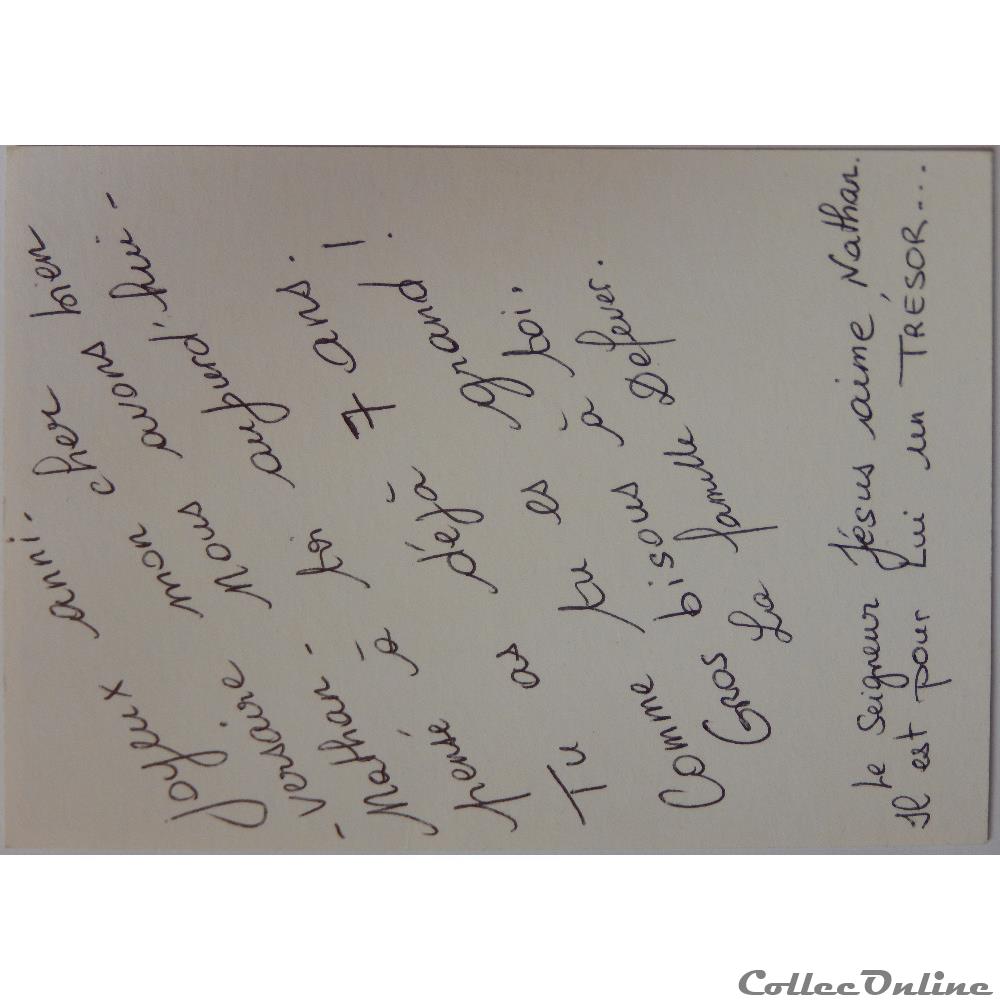 Joyeux anni-
-versaire mon cher
Nathan. Nous avons bien
pensé à toi aujourd'hui -
Tu as déjà 7 ans.
Comme tu es grand !
Gros bisous à toi.
La famille Defever.
Le Seigneur Jésus aime Nathan.
Il est pour Lui un TRÉSOR...
CollecOnline